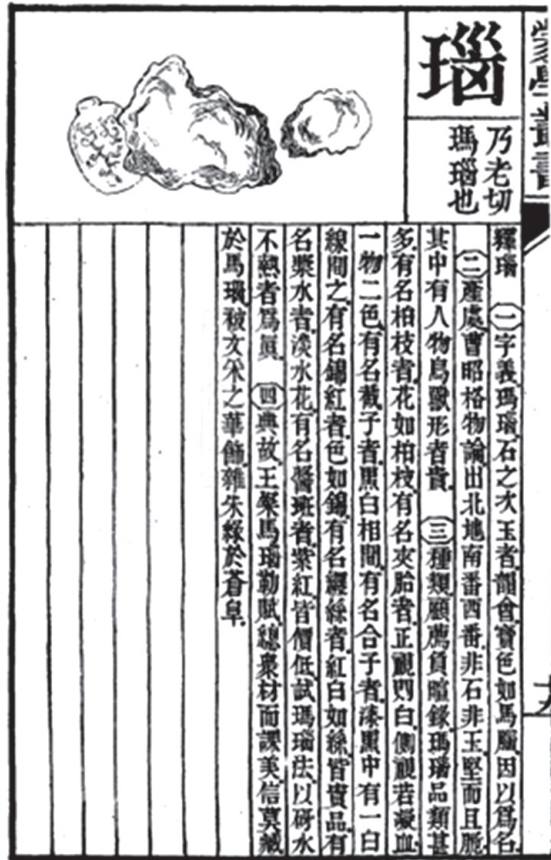 蒙學叢書
瑙
乃老切
瑪瑙也
釋瑙 ㊀字義瑪瑙石之次玉者韻會寶色如馬腦因以爲名
㊁產處曹昭格物論出北地南番西番非石非玉堅而且脆
其中有人物鳥獸形者貴 ㊂種類顧薦負暄錄瑪瑙品類甚
多有名柏枝者花如柏枝有名夾胎者正觀則白側觀若凝血
一物二色有名截子者黑白相間有名合子者漆黑中有一白
線間之有名錦紅者色如錦有名纏絲者紅白如絲皆貴品有
名漿水者淡水花有名醬班者紫紅皆價低試瑪瑙法以砑木
不熱者爲眞 ㊃典故王粲馬瑙勒賦總衆材而課美信莫臧
於馬瑙被文采之華飾雜朱綠於蒼皁